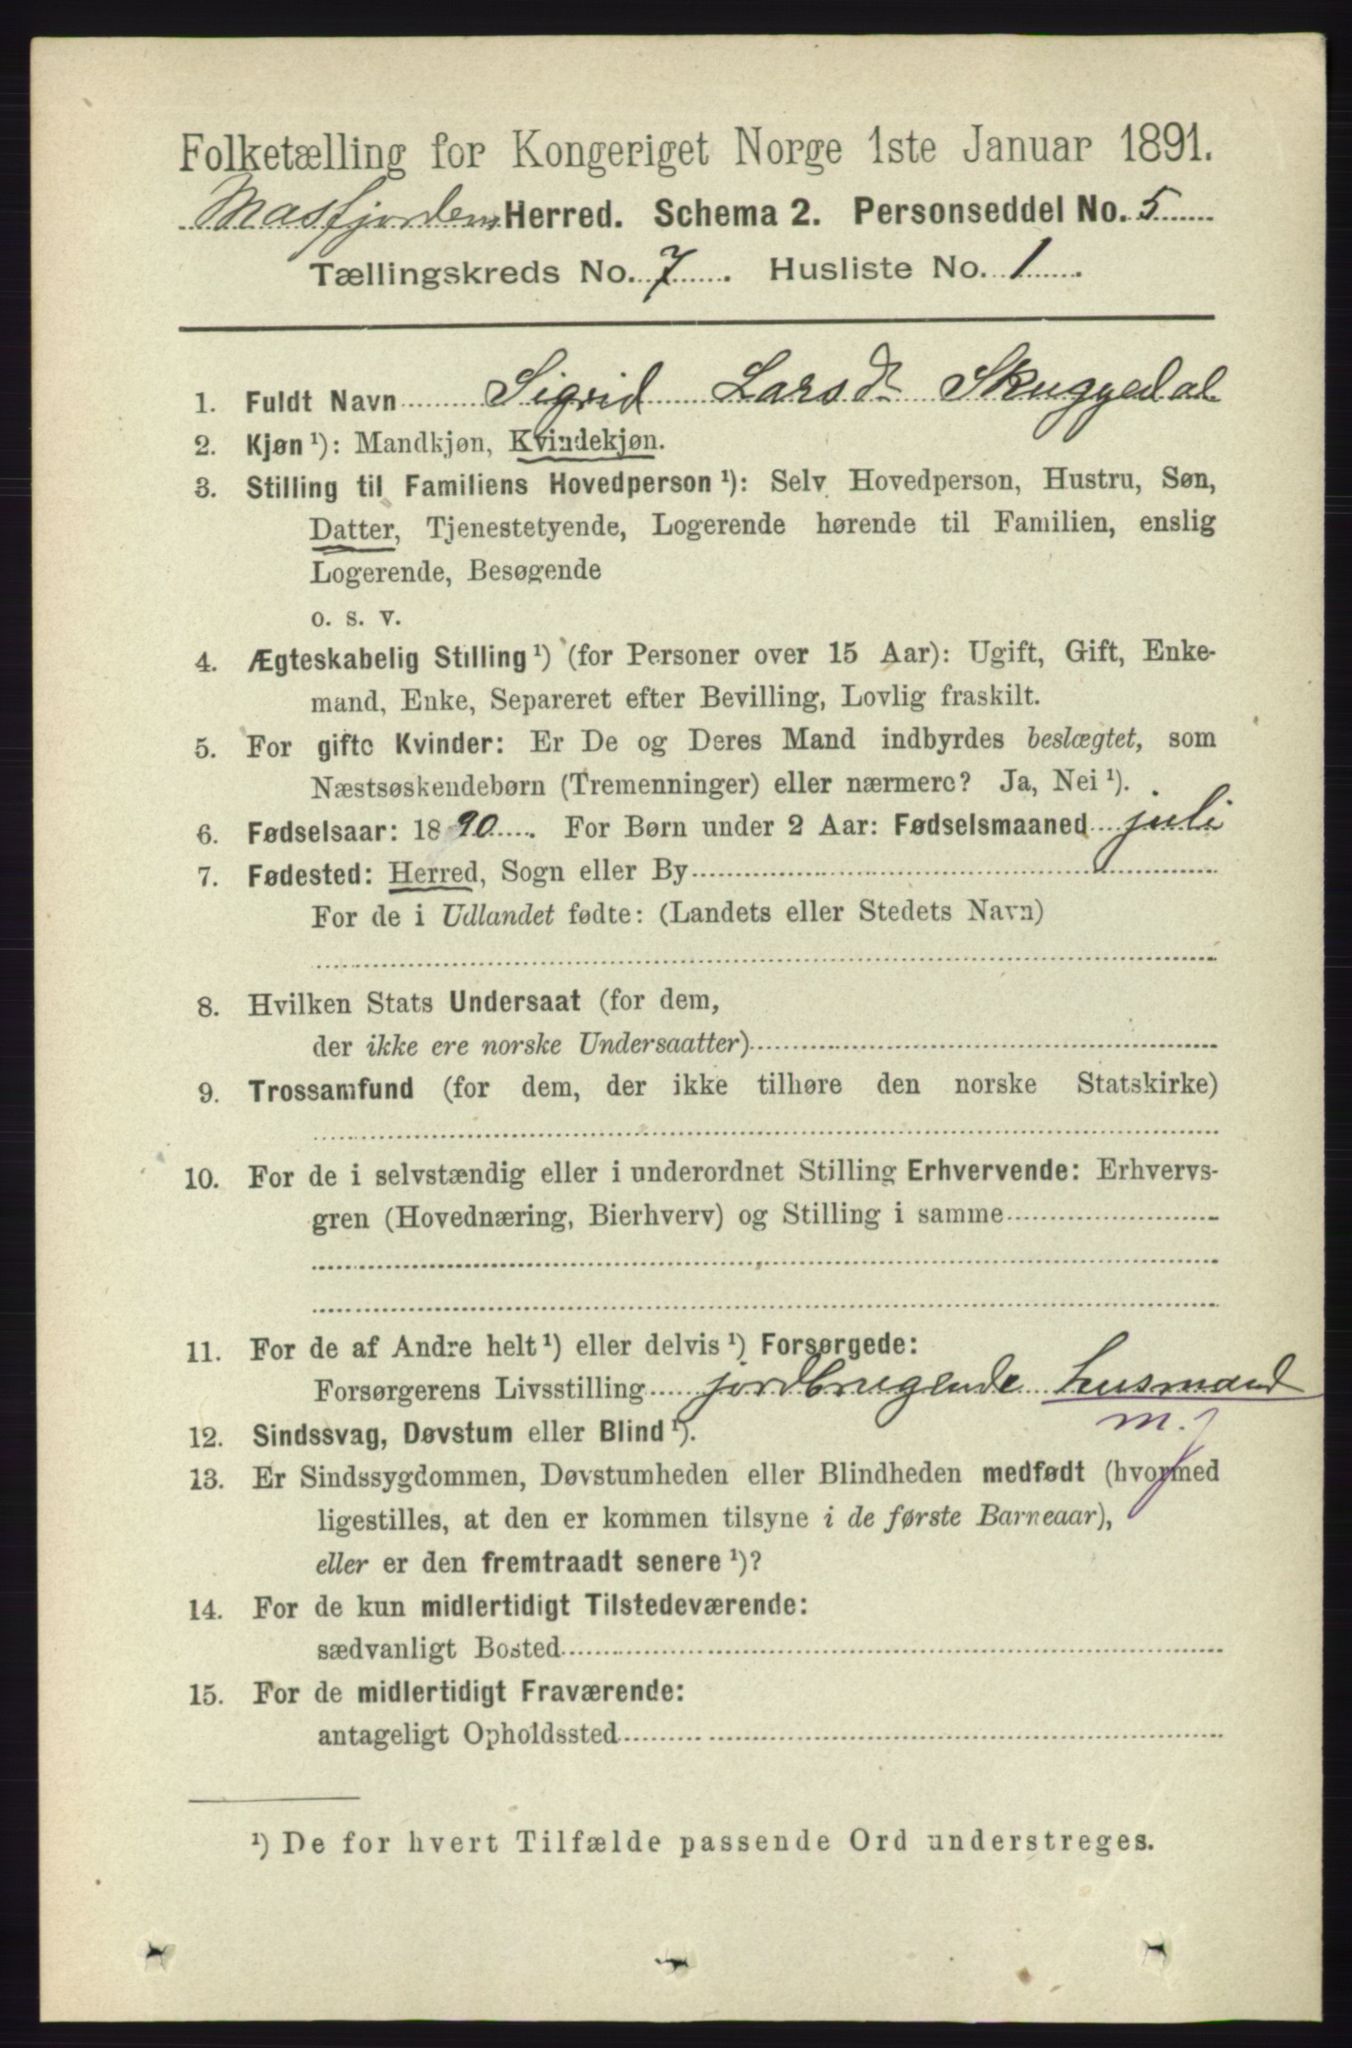 Folketælling for Kongeriget Norge 1ste Januar 1891.
Masfjorden Herred. Schema 2. Personseddel No. 5
Tællingskreds No. 7. Husliste No. 1.
1. Fuldt Navn Sigrid Larsdr Skuggedal
2. Kjøn ¹): Mandkjøn, Kvindekjøn.
3. Stilling til Familiens Hovedperson ¹): Selv Hovedperson, Hustru, Søn,
Datter, Tjenestetyende, Logerende hørende til Familien, enslig
Logerende, Besøgende
o. s. v.
4. Ægteskabelig Stilling ¹) (for Personer over 15 Aar): Ugift, Gift, Enke-
mand, Enke, Separeret efter Bevilling, Lovlig fraskilt.
5. For gifte Kvinder: Er De og Deres Mand indbyrdes beslægtet, som
Næstsøskendebørn (Tremenninger) eller nærmere? Ja, Nei ¹).
6. Fødselsaar: 1890. For Børn under 2 Aar: Fødselsmaaned juli
7. Fødested: Herred, Sogn eller By
For de i Udlandet fødte: (Landets eller Stedets Navn)
8. Hvilken Stats Undersaat (for dem,
der ikke ere norske Undersaatter)
9. Trossamfund (for dem, der ikke tilhøre den norske Statskirke)
10. For de i selvstændig eller i underordnet Stilling Erhvervende: Erhvervs-
gren (Hovednæring, Bierhverv) og Stilling i samme
11. For de af Andre helt ¹) eller delvis ¹) Forsørgede:
Forsørgerens Livsstilling jordbrugende husmand
m. j
12. Sindssvag, Døvstum eller Blind ¹).
13. Er Sindssygdommen, Døvstumheden eller Blindheden medfødt (hvormed
ligestilles, at den er kommen tilsyne i de første Barneaar),
eller er den fremtraadt senere ¹)?
14. For de kun midlertidigt Tilstedeværende:
sædvanligt Bosted
15. For de midlertidigt Fraværende:
antageligt Opholdssted
¹) De for hvert Tilfælde passende Ord understreges.